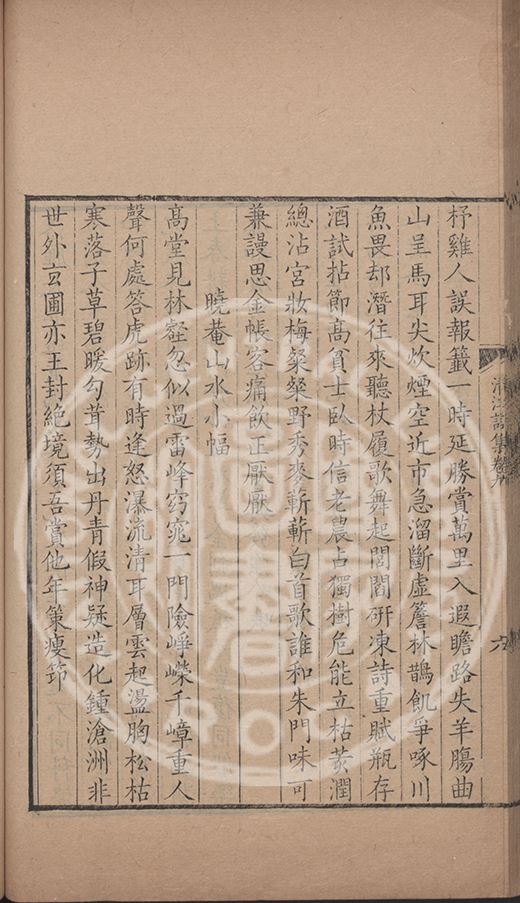 杼雞人誤報籤一時延勝賞萬里入遐瞻路失羊膓曲
山呈馬耳尖炊煙空近市急溜斷虛簷林鵲飢爭啄川
魚畏却潛往來聽杖屨歌舞起閭閻硏凍詩重賦瓶存
酒試拈節高貧士臥時信老農占獨樹危能立枯荄潤
總沾宮妝梅粲粲野秀麥蘄蘄白首歌誰和朱門味可
兼謾思金帳客痛飮正厭厭
曉菴山水小幅
高堂見林壑忽似過雷峰窈窕一門險崢嶸千嶂重人
聲何處答虎跡有時逢怒瀑流清耳層雲起盪胸松枯
寒落子草碧暖勾茸勢出丹青假神疑造化鍾滄洲非
世外玄圃亦王封絕境須吾賞他年策瘦筇
清江詩集卷九
六